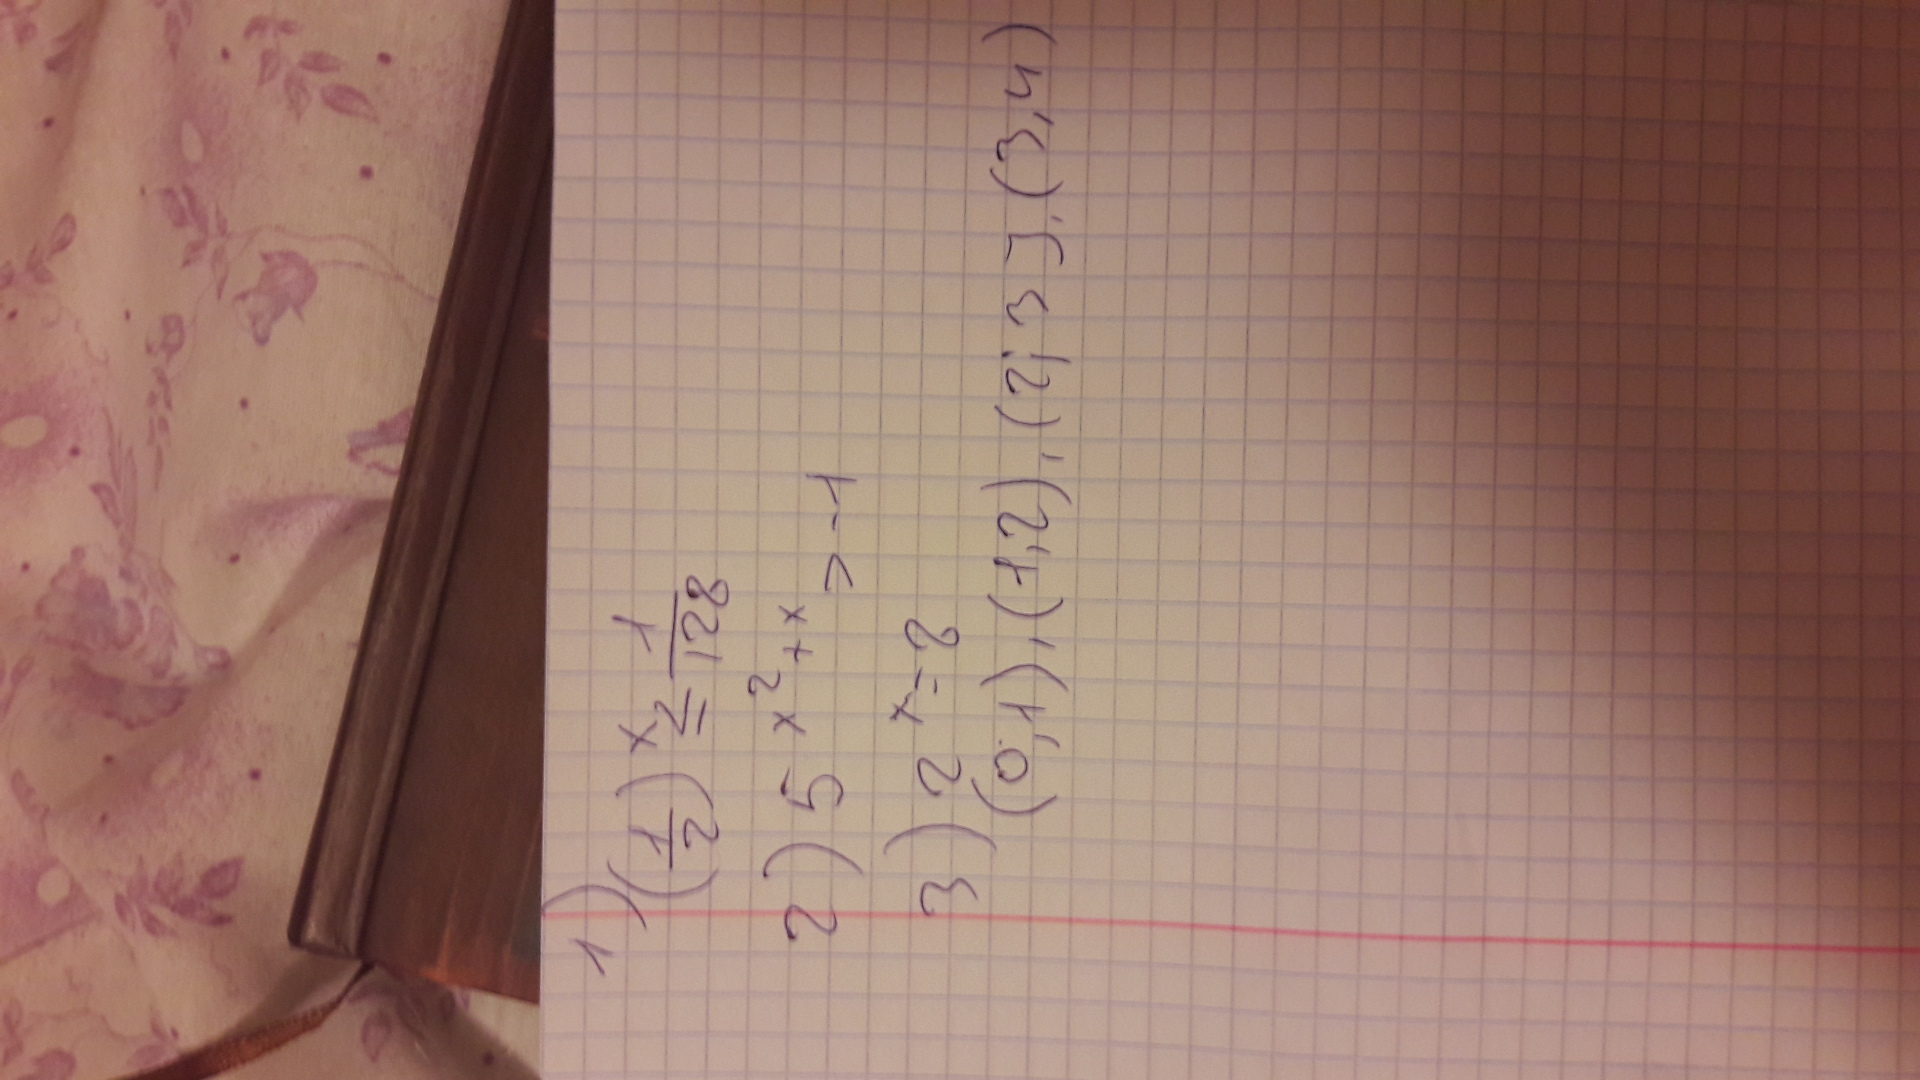 1) (1/2)^x ≥ 1/128
2) 5^(x²+x) > -1
3) 2^x = 8
(0,1), (1,2), (2; 3]. (3,4)